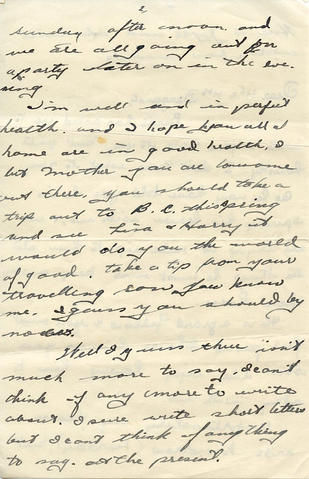 2
sunday after noon. and
we are all going out for
a party later on in the eve.
ning
I'm well and in perfect
health. and I hope you all at
home are in good health. I
bet Mother you are lonesome
out there, you should take a
trip out to B.C. this spring
and see Lisa & Harry it
would do you the world
of good. take a tip from your
travelling son. you know
me. I guess you should by
now.
Well I guess there isn't
much more to say. I can't
think of any more to write
about. I sure write short letters
but I cant think of anything
to say. at the present.